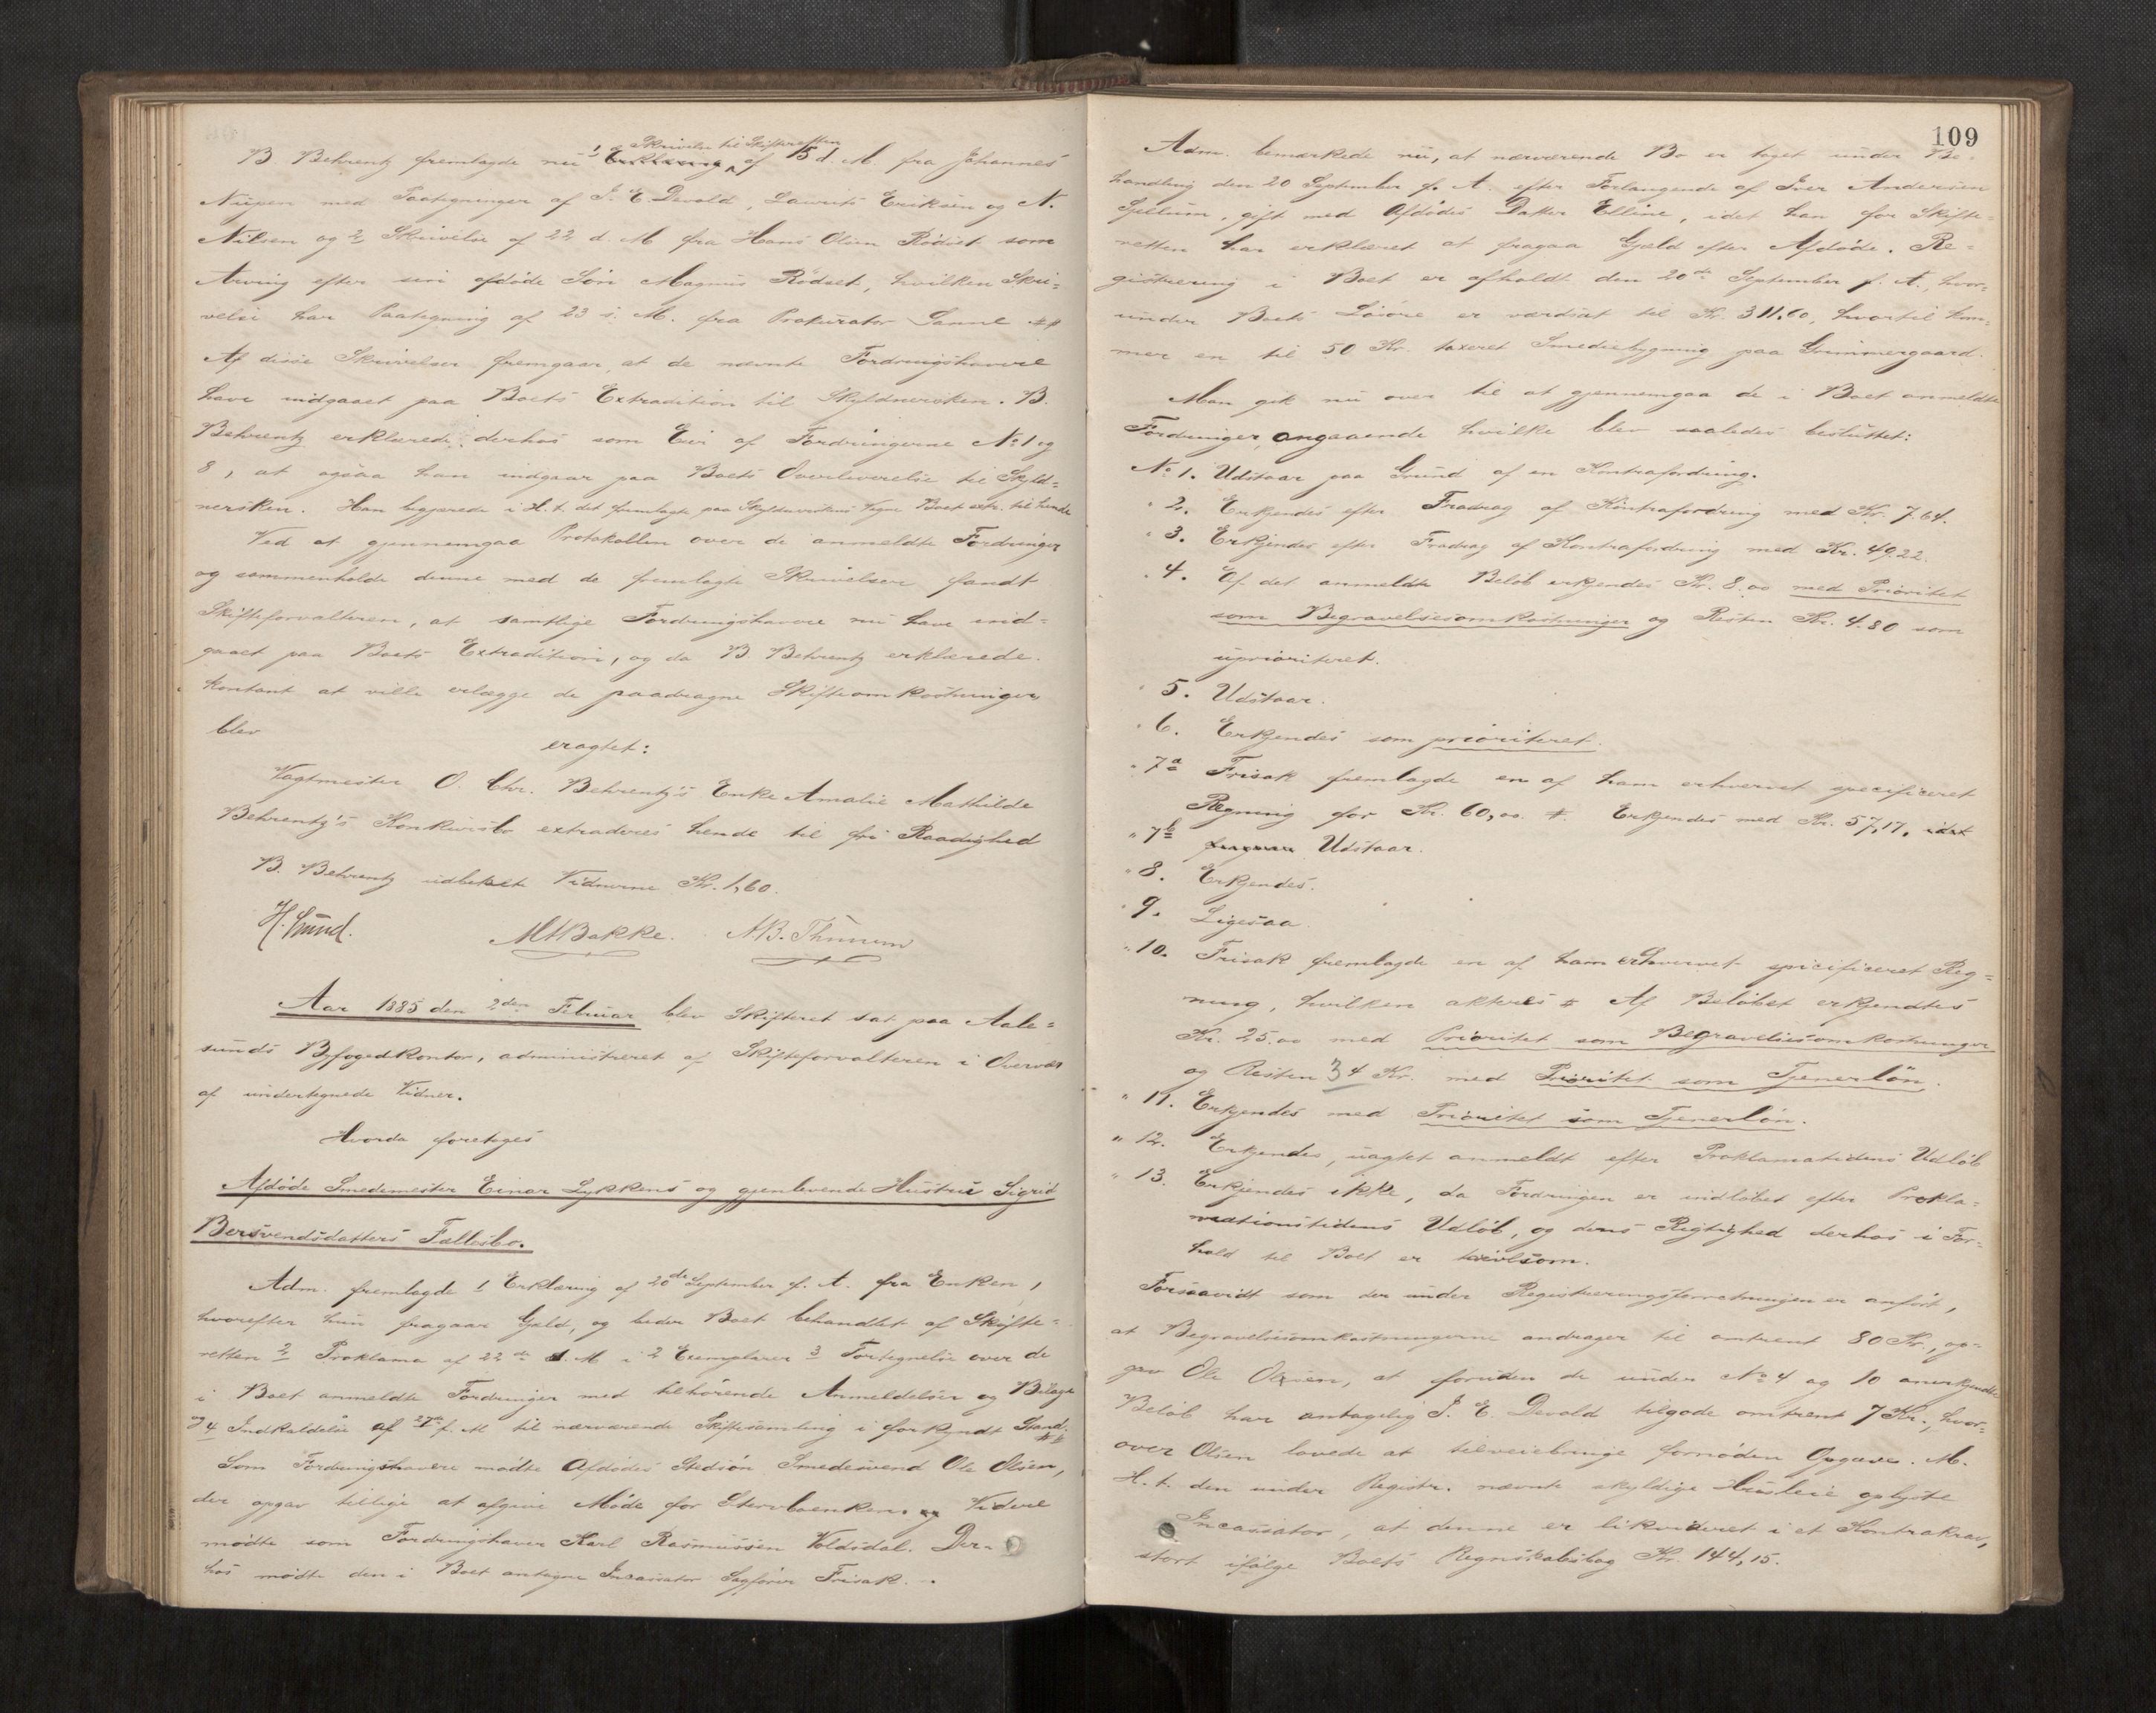 B. Behrentz fremlagde nu 1 Skrivelse til Skifteretten af 15 d. M. fra Johannes
Nupen med Paategninger af J. E. Devold, Laurits Eriksen og N.
Nilsen og 2 Skrivelse af 22 d. M fra Hans Olsen Rødset som
Arving efter sin afdøde Søn Magnus Rödset, hvilken Skri=
velse har Paategning af 23 s. M. fra Prokurator Sanne
Af disse Skrivelser fremgaar, at de nævnte Fordringshavere
have indgaaet paa Boets Extradition til Skyldnersken. B.
Behrentz erklærede derhos som Eier af Fordringerne No 1 og
8, at ogsaa han indgaar paa Boets Overleverelse til Skyld=
nersken. Han begjærede i H. t. det fremlagte paa Skyldnerskens Vegne Boet extr. til hende
Ved at gjennemgaa Protokollen over de anmeldte Fordringer
og sammenholde denne med de fremlagte Skrivelser fandt
Skifteforvalteren, at samtlige Fordringshavere nu have ind=
gaaet paa Boets Extradition, og da B. Behrentz erklærede
kontant at ville erlægge de paadragne Skifteomkostninger,
blev
eragtet:
Vagtmester O. Chr. Behrentz's Enke Amalie Mathilde
Behrentz's Konkursbo extraderes hende til fri Raadighed
B. Behrentz udbetalte Vidnerne Kr. 1,60.
H. Lund. MABakke. A.B. Thunem
Aar 1885 den 2den Februar blev Skifteret sat paa Aale=
sunds Byfogedkontor, administreret af Skifteforvalteren i Overvær
af undertegnede Vidner.
Hvorda foretoges
Afdøde Smedemester Einar Lykkens og gjenlevende Hustru Sigrid
Bersvendsdatters Fællesbo.
Adm. fremlagde 1 Erklæring af 20de September f. A. fra Enken,
hvorefter hun fragaar Gjæld, og beder Boet behandlet af Skifte=
retten 2 Proklama af 22de s. M i 2 Exemplarer 3 Fortegnelse over de
i Boet anmeldte Fordringer med tilhørende Anmeldelser og Bilage
og 4 Indkaldelse af 27de f. M til nærværende Skiftesamling i forkyndt Stand.
Som Fordringshavere mødte Afdødes Stedsøn Smedesvend Ole Olsen,
der opgav tillige at afgive Møde for Stervboenken. Videre
mødte som Fordringshaver Karl Rasmussen Voldsdal. Der=
hos mødte den i Boet antagne Incassator Sagfører Frisak.
109
Adm. bemærkede nu, at nærværende Bo er taget under Be=
handling den 20 September f. A. efter Forlangende af Iver Andersen
Spillum, gift med Afdødes Datter Elline, idet han for Skifte=
retten har erklæret at fragaa Gjæld efter Afdøde. Re=
gistrering i Boet er afholdt den 20de September f. A., hvor=
under Boets Løsøre er værdsat til Kr. 311.60, hvortil kom=
mer en til 50 Kr. taxeret Smedebygning paa Grimmergaard.
Man gik nu over til at gjennemgaa de i Boet anmeldte
Fordringer, angaaende hvilke blev saaledes besluttet:
No 1. Udstaar paa Grund af en Kontrafordring.
" 2. Erkjendes efter Fradrag af Kontrafordring med Kr. 7.64.
" 3. Erkjendes efter Fradrag af Kontrafordring med Kr. 49.22.
" 4. Af det anmeldte Beløb erkjendes Kr. 8.00 med Prioritet
som Begravelsesomkostninger og Resten Kr. 4.80 som
uprioriteret.
" 5. Udstaar.
" 6. Erkjendes som prioriteret.
" 7a Frisak fremlagde en af ham erhvervet specificeret
Regning for Kr. 60,00. Erkjendes med Kr. 57,17. idet
" 7b Udstaar.
" 8. Erkjendes.
" 9. Ligesaa
" 10. Frisak fremlagde en af ham erhvervet specificeret Reg=
ning, hvilken akteres Af Beløbet erkjendtes
Kr. 25.00 med Prioritet som Begravelsesomkostninger
og Resten 34 Kr. med Prioritet som Tjenerløn.
" 11. Erkjendes med Prioritet som Tjenerløn.
" 12. Erkjendes, uagtet anmeldt efter Proklamatidens Udløb
" 13. Erkjendes ikke, da Fordringen er indløbet efter Prokla=
mationstidens Udløb, og dens Rigtighed derhos i For=
hold til Boet er tvivlsom.
Forsaavidt som der under Registreringsforretningen er anført,
at Begravelsesomkostningerne andrager til omtrent 80 Kr., op=
gav Ole Olsen, at foruden de under No 4 og 10 anerkjendte
Beløb har antagelig J. E. Devold tilgode omtrent 7 Kr., hvor=
over Olsen lovede at tilveiebringe fornøden Opgave. M.
H. t. den under Registr. nævnte skyldige Husleie oplyste
Incassator, at denne er likvideret i et Kontrakrav,
stort ifølge Boets Regnskabsbog Kr. 144,15.